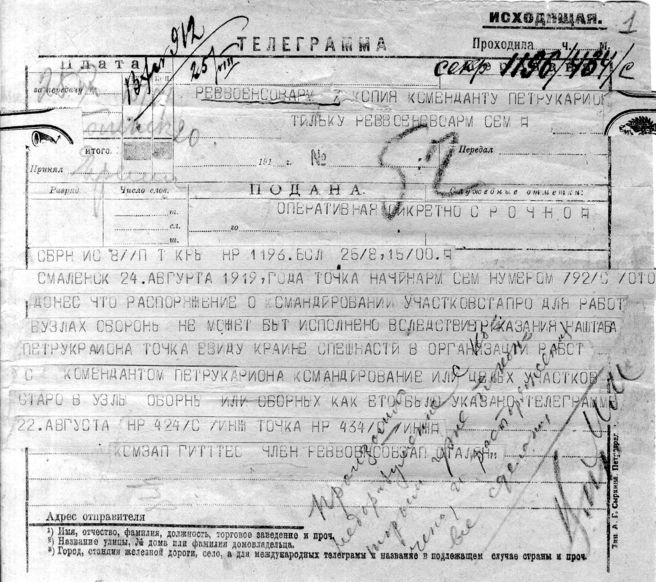 ИСХОДЯЩАЯ.
1
ТЕЛЕГРАММА
Проходила ч. м.
Плата
13/VIII 912
25/VIII
секр 1196/434/с
за передачу
РЕВВОЕНСОВАРМ 7 КОПИЯ КОМЕНДАНТУ ПЕТРУКАРИОН
ТИЛЬКУ РЕВВОЕНСОВАРМ СЕМ
ИТОГО.
Принял
191 г. №
Передал
52
Разряд. Число слов. ПОДАНА. Служебные отметки:
т.
сл.
го
ш.
ОПЕРАТИВНАЯ СИКРЕТНО СРОЧНОЯ
СБРН ИС 8//П Т КРБ НР 1196.БСЛ 25/8,15/00.Я
СМАЛЕНСК 24.АВГУРТА 1919,ГОДА ТОЧКА НАЧИНАРМ СЕМ НУМЕРОМ 792/С /ОТО
ДОНЕС ЧТО РАСПОРЯЖЕНИЕ О КОМАНДИРОВАНИИ УЧАСТКОВСТАПРО ДЛЯ РАБОТ
ВУЗЛАХ ОБОРОНЬ НЕ МОЖЕТ БЫТ ИСПОЛНЕНО ВСЛЕДСТВИЕ УКАЗАНИЯ НАШТАБА
ПЕТРУКРАИОНА ТОЧКА ЕВИДУ КРАИНЕ СПЕШНАСТИ В ОРГАНИЗАЧИ РАБОТ
С КОМЕНДАНТОМ ПЕТРУКАРИОНА КОМАНДИРОВАНИЕ ИЛИ ЦЕЛЫХ УЧАСТКОВ
СТАРО В УЗЛЬ ОБОРНЬ ИЛИ ОБОРНЫХ КАК ЕТО БЫЛО УКАЗАНО ТЕЛЕГРАММЕ
22.АВГУСТА НР 424/С /ИНЖ ТОЧКА НР 434/С /ИНЖА
КОМЗАП ГИТТТЕС ЧЛЕН РЕВВОЕСОВЗАП СТАЛИН
Произошло
недоразумение с
все сделано
Адрес отправителя
¹) Имя, отчество, фамилия, должность, торговое заведение и проч.
²) Название улицы, № дома или фамилия домовладельца.
³) Город, станция железной дороги, село, а для международных телеграмм и название в подлежащем случае страны и проч.